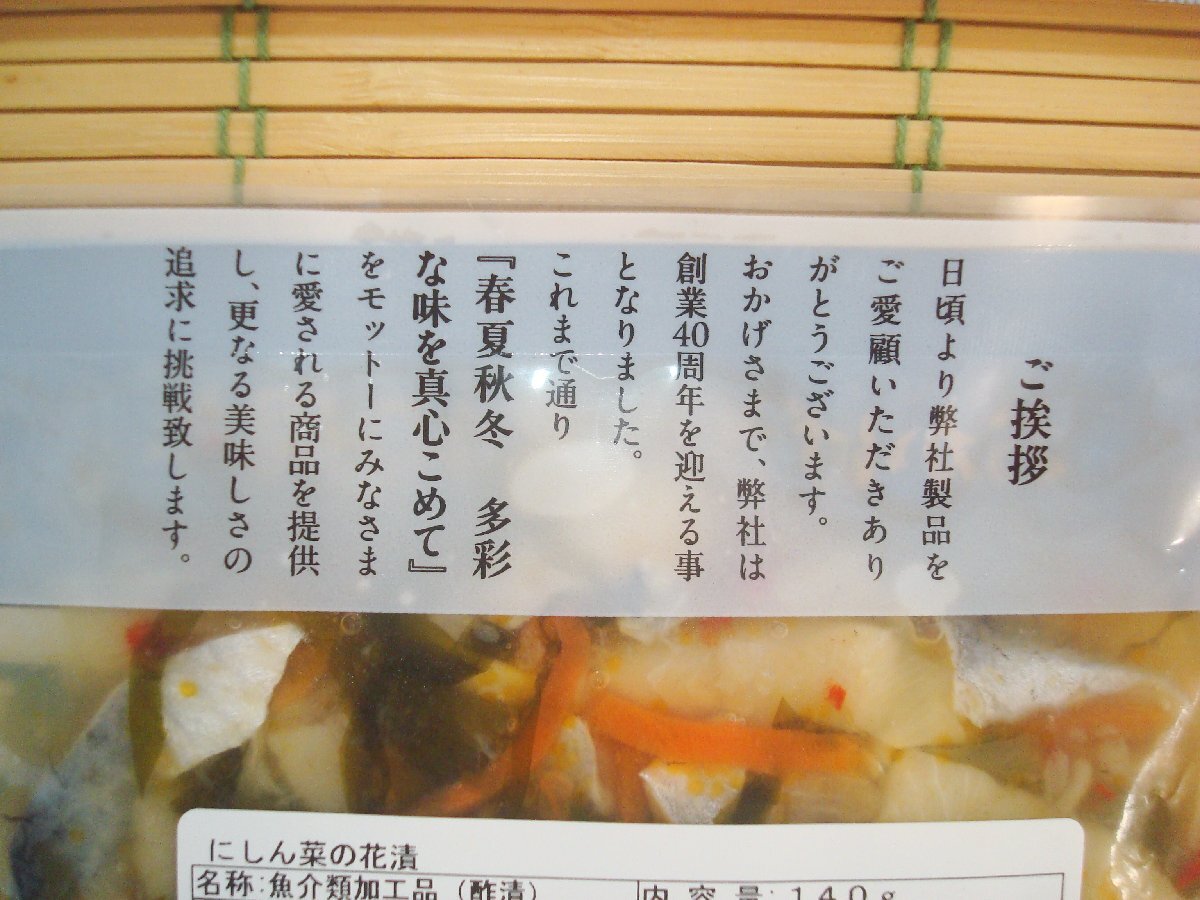 ご挨拶
日頃より弊社製品を
ご愛顧いただきあり
がとうございます。
おかげさまで、弊社は
創業40周年を迎える事
となりました。
これまで通り
『春夏秋冬　多彩
な味を真心こめて』
をモットーにみなさま
に愛される商品を提供
し、更なる美味しさの
追求に挑戦致します。
にしん菜の花漬
名称:魚介類加工品（酢漬）
内容量:140g